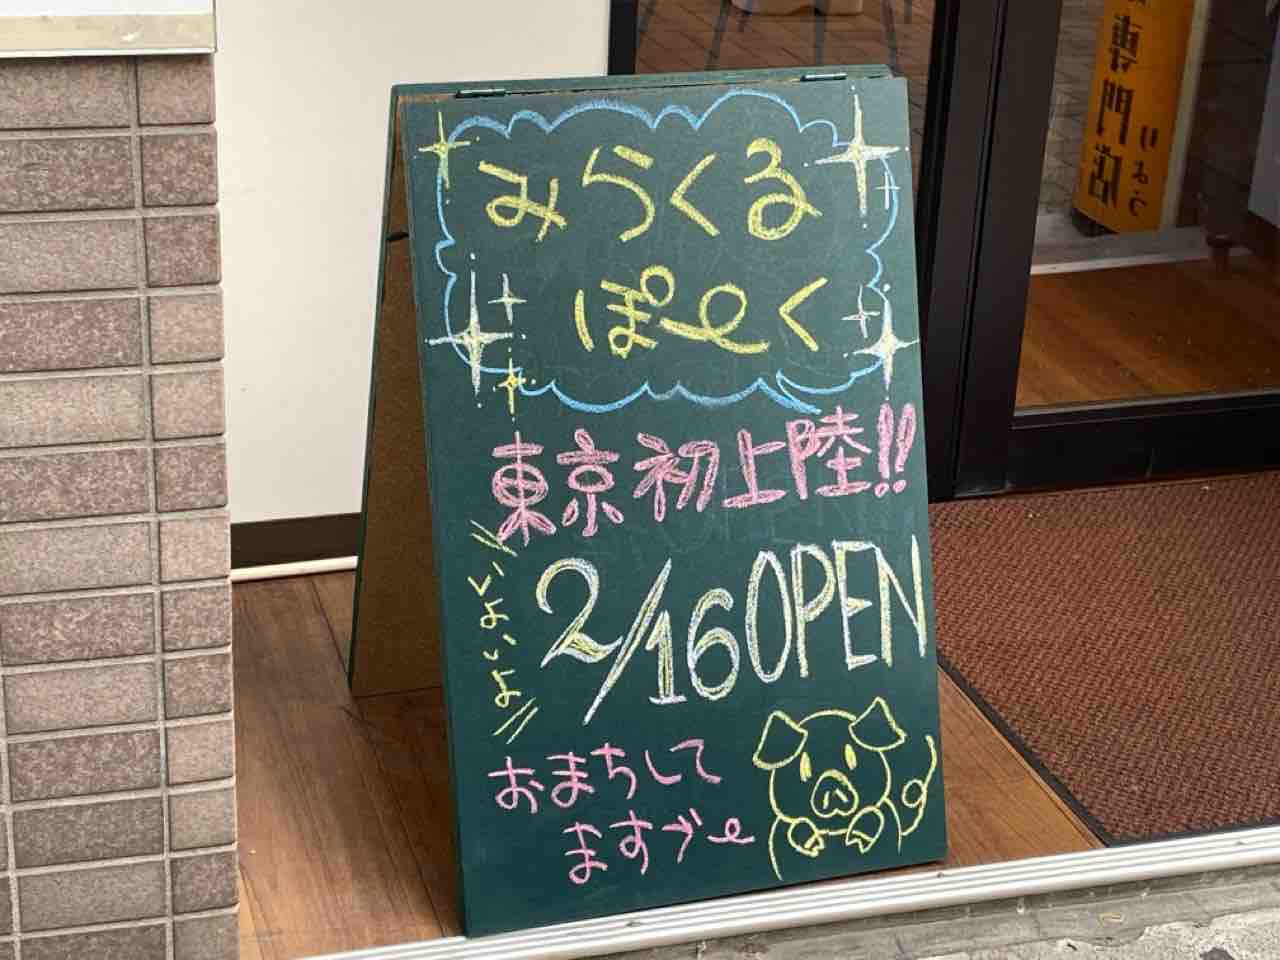 みらくる
ぽーく
東京初上陸!!
いよいよ
2/16 OPEN
おまちして
ますブー
専門店
りょう